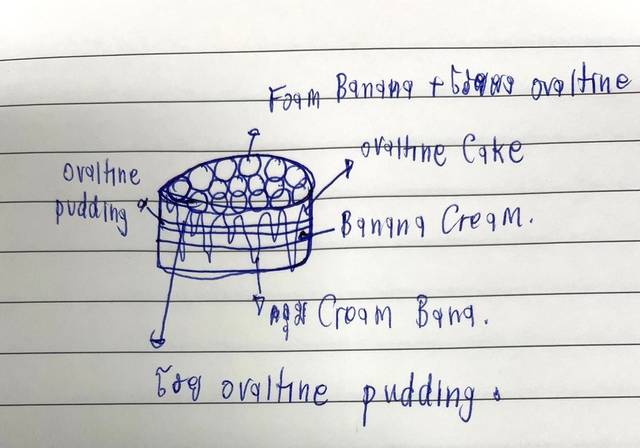 Foam Banana + โรยผง ovaltine
ovaltine Cake
ovaltine
pudding
Banana Cream.
Cream Bana.
โรย ovaltine pudding.